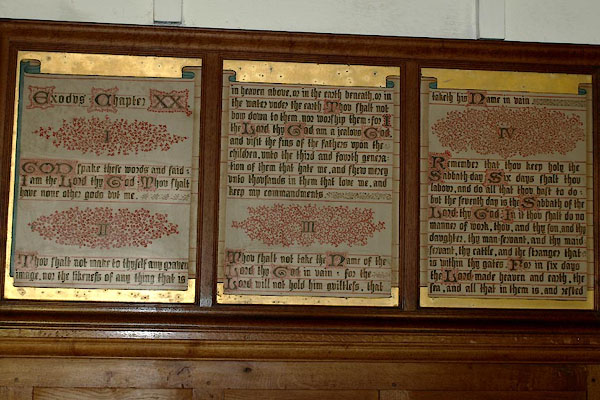 Exodus Chapter XX
I
GOD spake these words and said
I am the Lord thy God Thou shalt
have none other gods but me
II
Thou shalt not make to thyself any graven
image, nor the likeness of any thing that is
in heaven above, or in the earth beneath, or in
the water under the earth Thou shalt not
bow down to them, nor worship them: for I
the Lord thy God am a jealous God,
and visit the sins of the fathers upon the
children, unto the third and fourth genera
tion of them that hate me, and shew mercy
unto thousands in them that love me, and
keep my commandments
III
Thou shalt not take the Name of the
Lord thy God in vain: for the
Lord will not hold him guiltless, that
taketh his Name in vain
IV
Remember that thou keep holy the
Sabbath day Six days shalt thou
labour, and do all that thou hast to do
but the seventh day is the Sabbath of the
Lord thy God In it thou shalt do no
manner of work, thou, and thy son, and thy
daughter, thy man-servant, and thy maid
servant, thy cattle, and the stranger that
is within thy gates For in six days
the Lord made heaven and earth, the
sea, and all that in them is, and rested